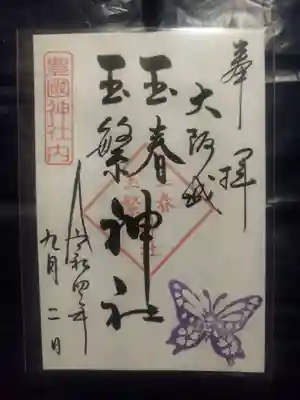 奉拝
大阪城
玉春
玉繁
神社
豊國神社内
令和四年
九月二日